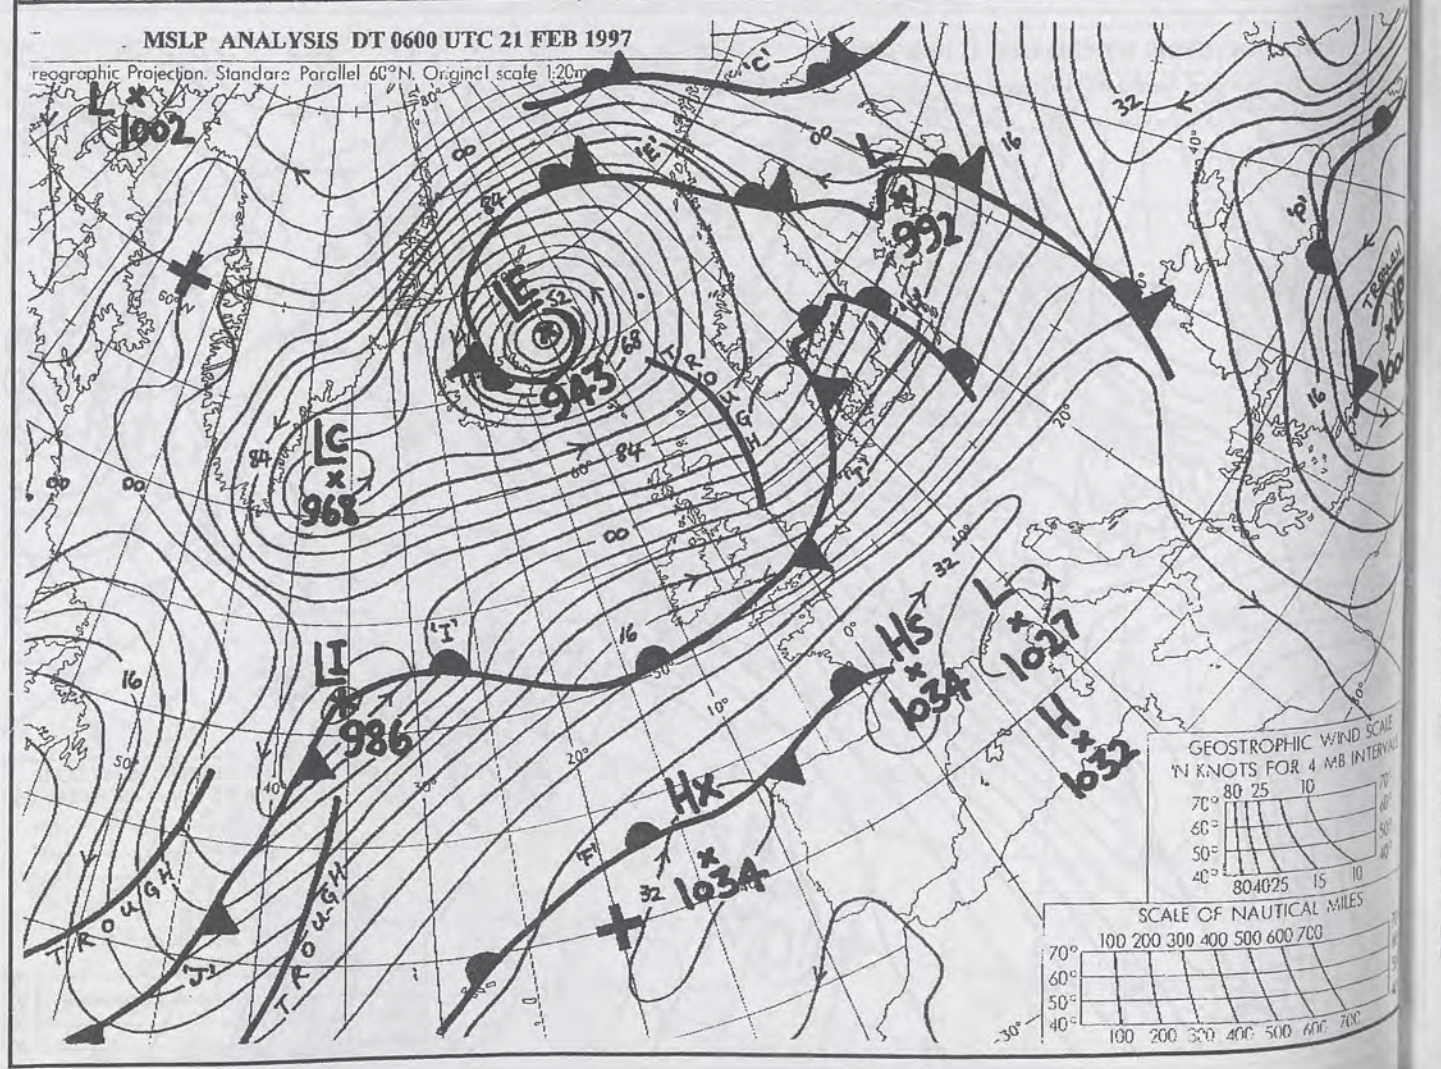 MSLP ANALYSIS DT 0600 UTC 21 FEB 1997
reographic Projection. Standard Parallel 60°N. Original scale 1:20m
L
1002
80°
'C'
32
16
40°
00
00
'E'
L
84
992
60°N
LE
52
'P'
943
68
TROUGH
16
20°
LC
84
968
60°
84
'I'
00
00
00
10°
32
L
1027
'I'
16
0°
HS
1034
LI
986
16
50°
H
1032
10°
20°
50°
40°
30°
HX
1034
'F'
32
TROUGH
TROUGH
'J'
GEOSTROPHIC WIND SCALE
IN KNOTS FOR 4 MB INTERVALS
80 25 10
70° 70°
60° 60°
50° 50°
40° 40°
80 40 25 15 10
SCALE OF NAUTICAL MILES
100 200 300 400 500 600 700
70°
60°
50°
40°
100 200 300 400 500 600 700
30°